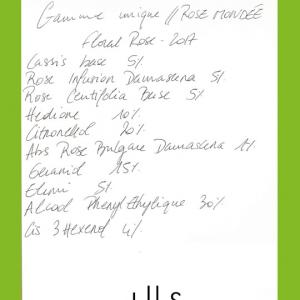 Gamme unique // ROSE MONDÉE
Floral Rose - 2017
Cassis base 5%
Rose Infusion Damascena 5%
Rose Centifolia Base 5%
Hedione 10%
Citronellol 20%
Abs Rose Bulgare Damascena 1%
Geraniol 15%
Elemi 5%
Alcool Phenyl Ethylique 30%
Cis 3 Hexenol 4%